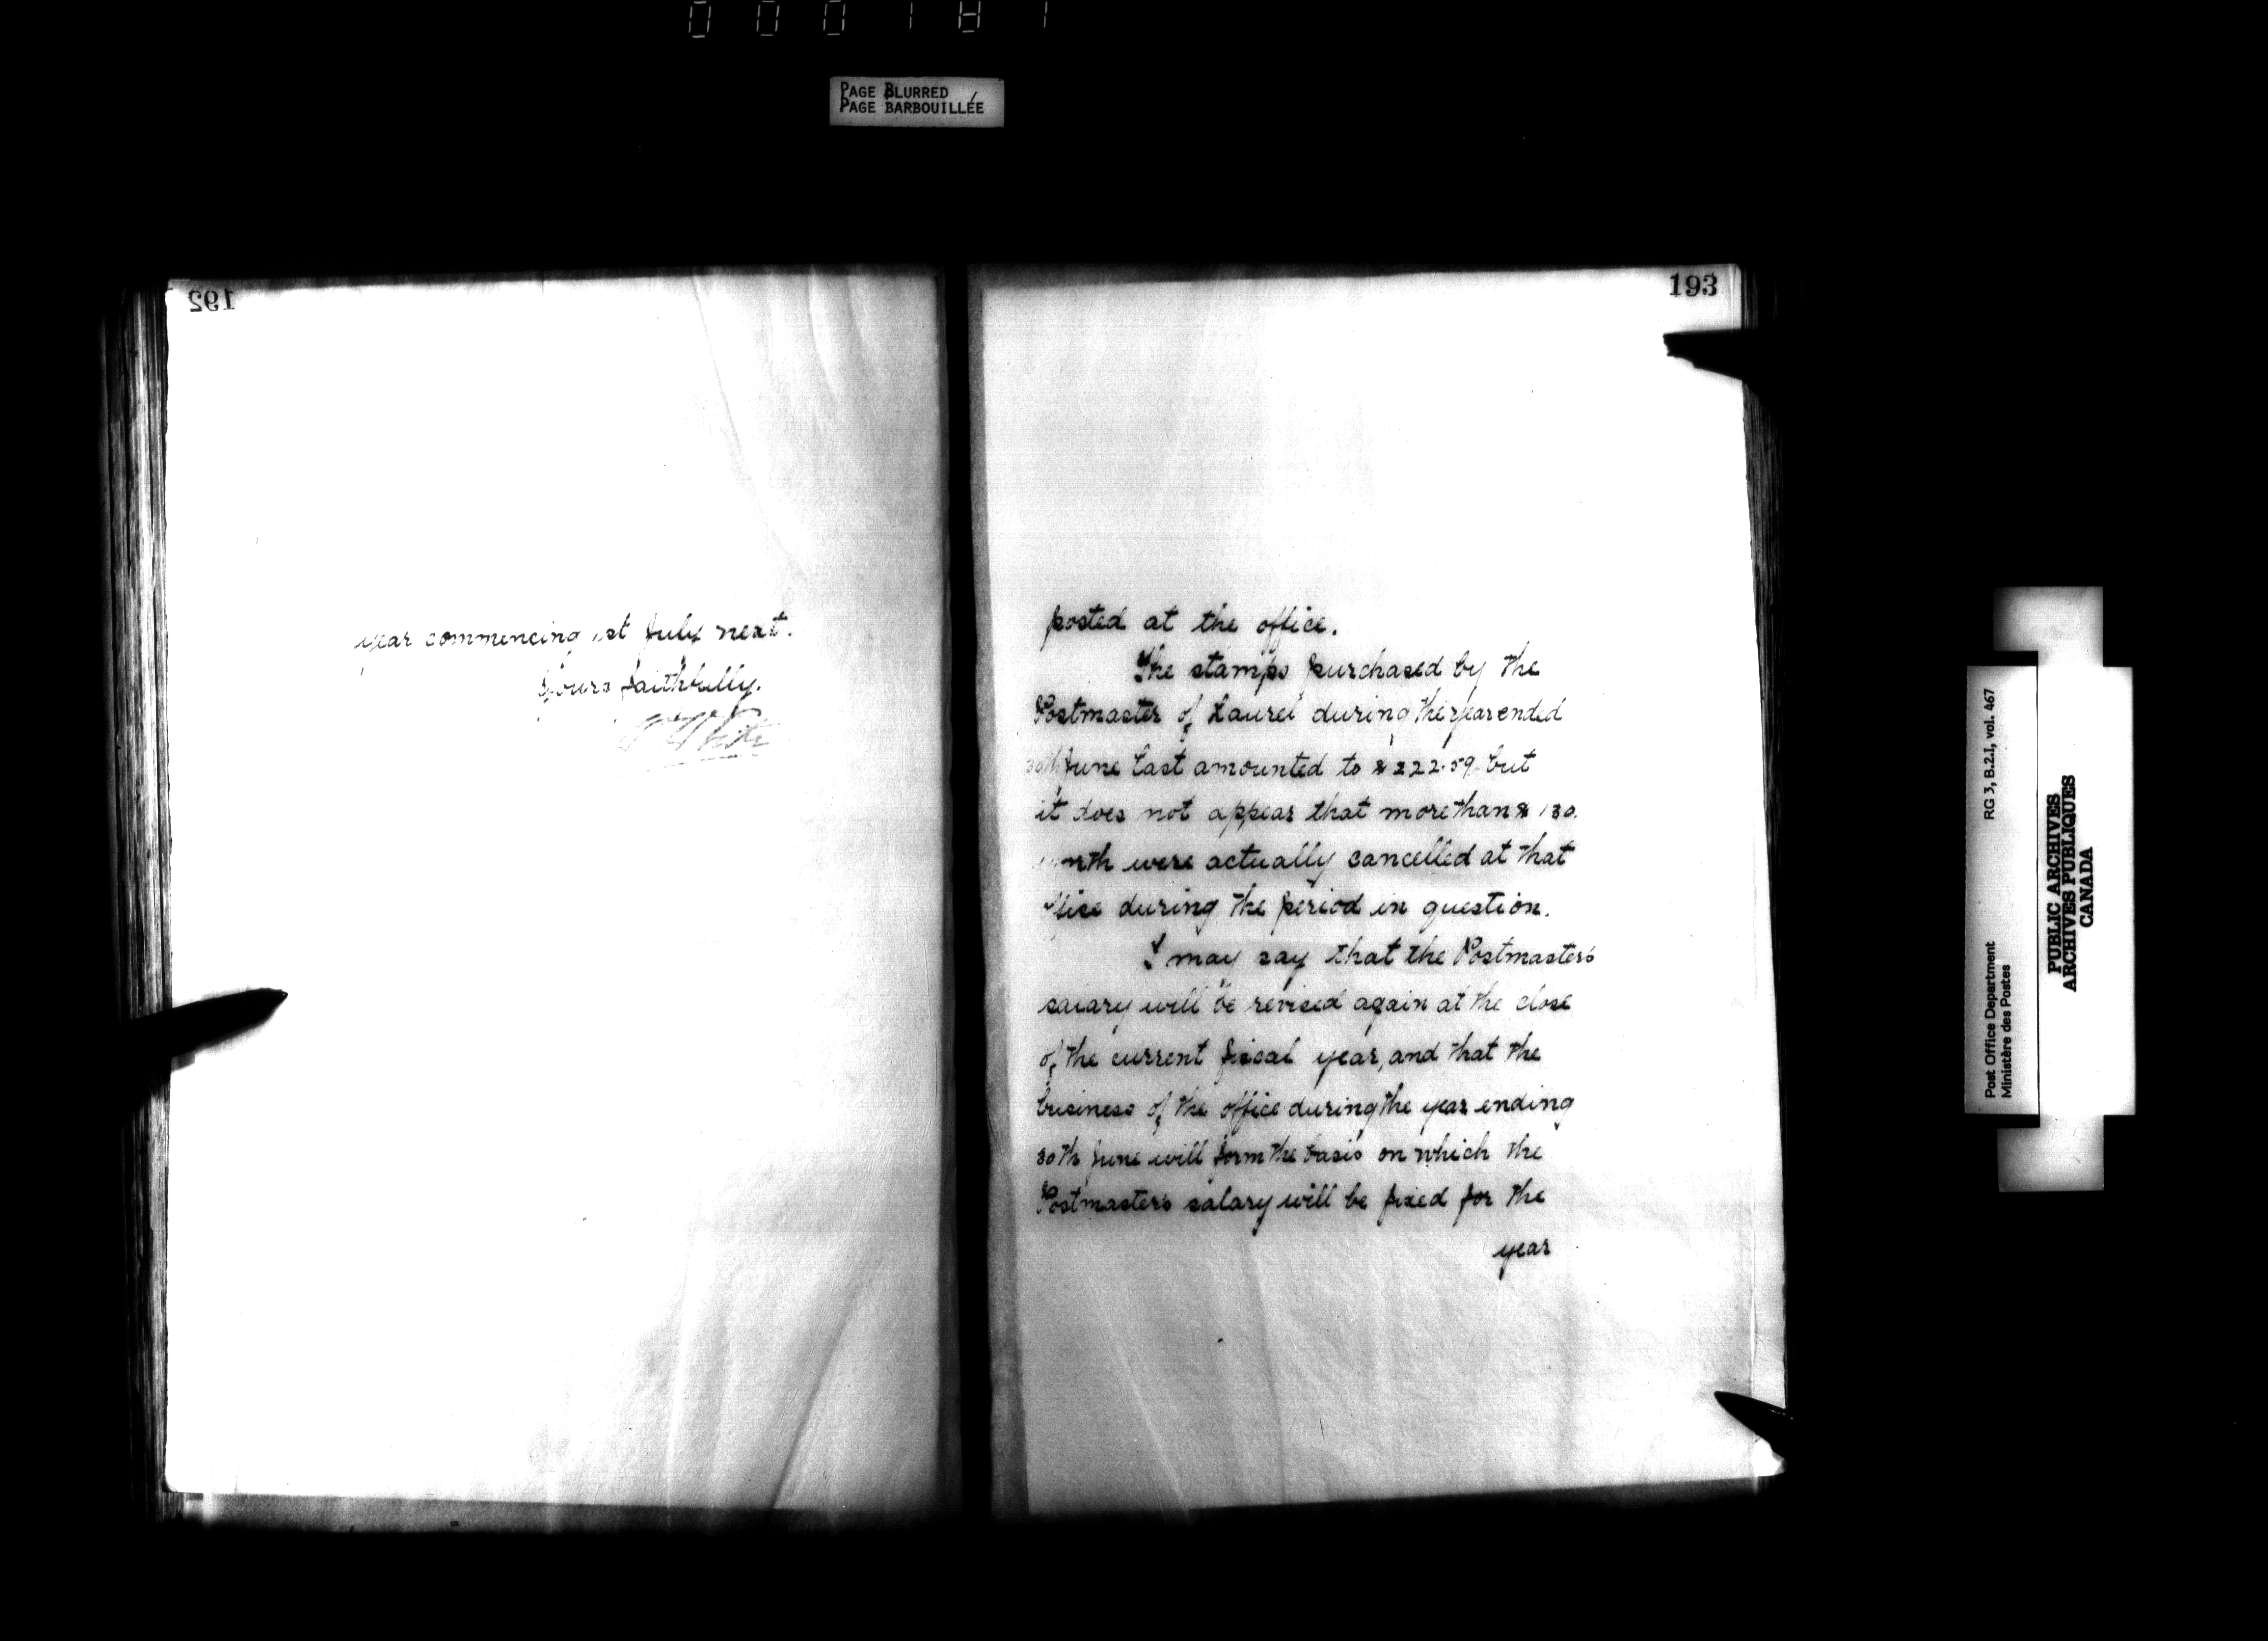 000181
PAGE BLURRED
PAGE BARBOUILLÉE
192
year commencing 1st July next.
Yours faithfully.
W White
193
posted at the office.
The stamps purchased by the
Postmaster of Laurel during the year ended
30th June last amounted to $222.59 but
it does not appear that more than $130.
worth were actually cancelled at that
office during the period in question.
I may say that the Postmaster's
salary will be revised again at the close
of the current fiscal year, and that the
business of the office during the year ending
30th June will form the basis on which the
Postmaster's salary will be fixed for the
year
Post Office Department RG 3, B.2.1, vol. 467
Ministère des Postes
PUBLIC ARCHIVES
ARCHIVES PUBLIQUES
CANADA